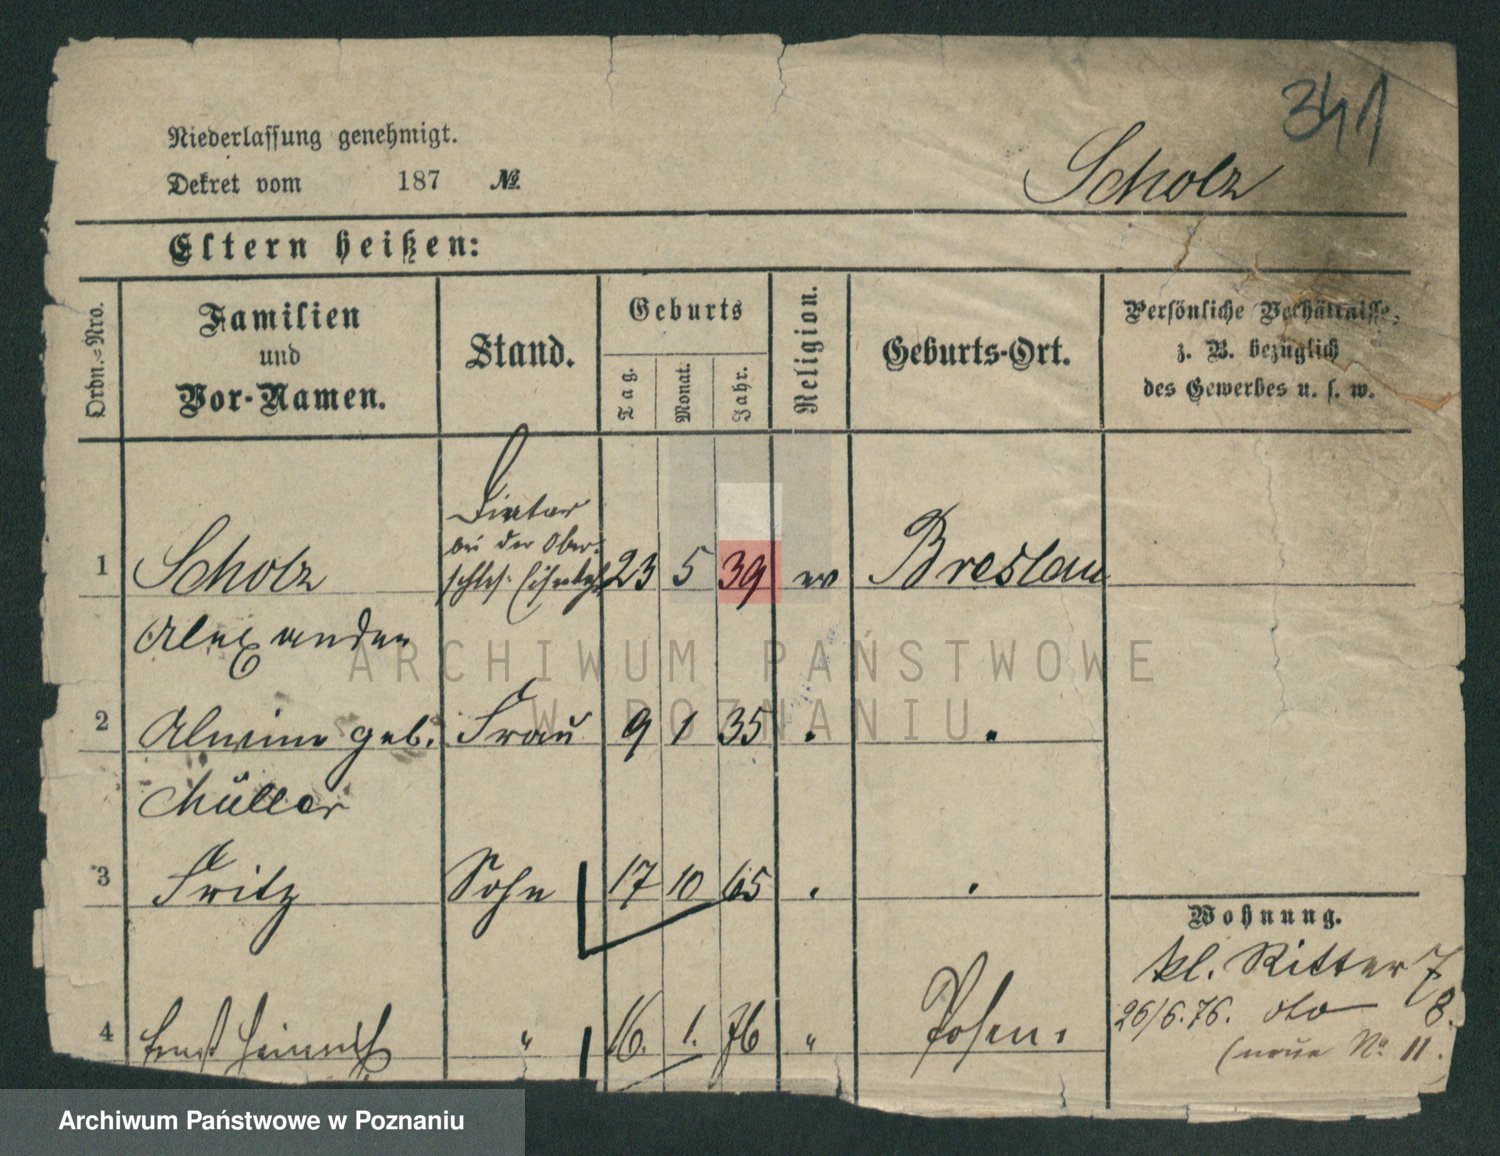 341
Niederlassung genehmigt.
Dekret vom 187 №
Scholz
Eltern heißen:
Ordn.-Nro.
Familien
und
Vor-Namen.
Stand.
Geburts
Tag.
Monat.
Jahr.
Religion.
Geburts-Ort.
Persönliche Verhältnisse,
z. B. bezüglich
des Gewerbes u. s. w.
Diätar
bei der Ober-
1 Scholz schles. Eisenbahn 23 5 39 ev Breslau
Alexander
2 Alwine geb. Frau 9 1 35 . .
Müller
3 Fritz Sohn 17 10 65 . .
Wohnung.
kl. Ritter 7
26/6.76. dto 8.
4 Ernst Heinrich " 16. 1. 76 " Posen.
(neue No 11.
ARCHIWUM PAŃSTWOWE
W POZNANIU
Archiwum Państwowe w Poznaniu